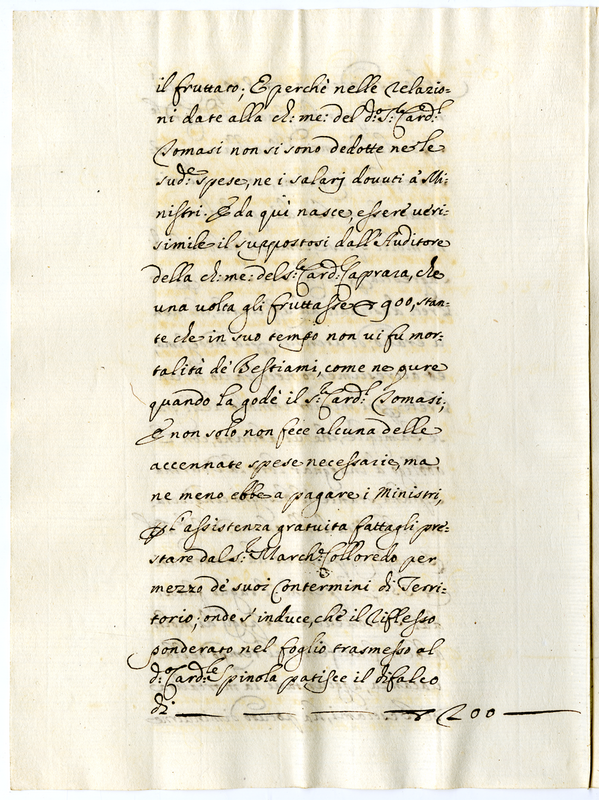 il fruttato; E perche nelle relazio=
ni date alla ch: me: del d.º S.r Card.l
Tomasi non si sono dedotte nè le
sud.e spese, ne i salarj dovuti à Mi=
nistri. E da quì nasce, essere veri=
simile il suppostosi dall'Auditore
della ch: me: del S.r Card.l Caprara, che
una volta gli fruttasse 900, stan=
te che in suo tempo non vi fù mor=
talità de Bestiami, come ne pure
quando la gode il S.r Card.l Tomasi;
E non solo non fece alcuna delle
accennate spese necessarie, ma
ne meno ebbe a pagare i Ministri,
l'assistenza gratuita fattagli pre=
stare dal S.r March.e Colloredo per
mezzo de suoi Contermini di Terri=
torio; onde s'induce, che il riflesso
ponderato nel foglio trasmesso al
d.º Card.le Spinola patisce il difalco
di 200